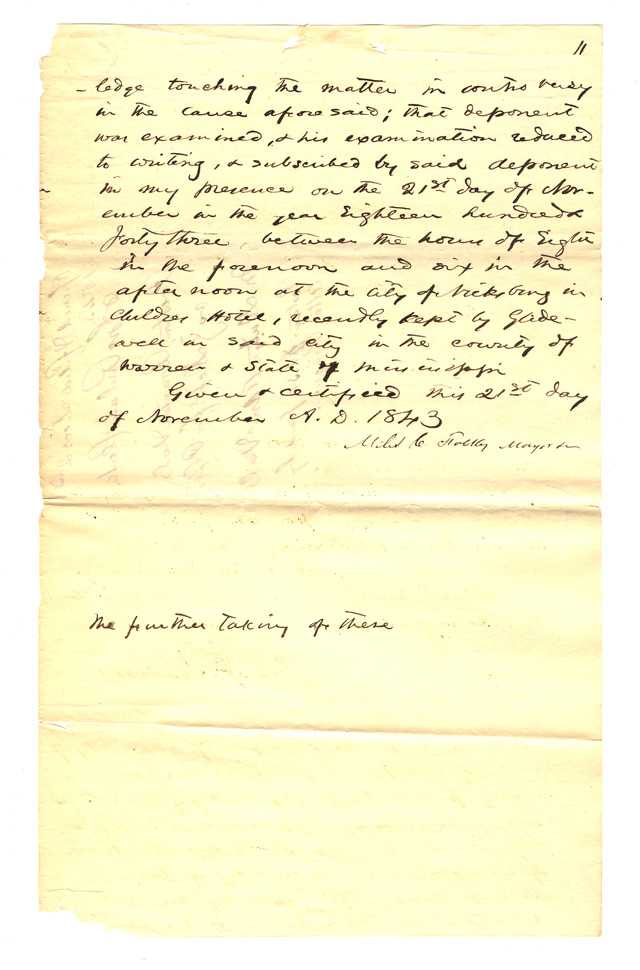 11
- ledge touching the matter in controversy
in the cause aforesaid; that deponent
was examined, & his examination reduced
to writing, & subscribed by said deponent
in my presence on the 21st day of Nov-
ember in the year Eighteen hundred &
forty three, between the hours of Eight
in the forenoon and six in the
afternoon at the city of Vicksburg in
Childres Hotel, recently kept by Glide-
well in said city in the county of
Warren & State of Mississippi
Given & certified this 21st day
of November A. D. 1843
Miles C Mayor
The further taking of these